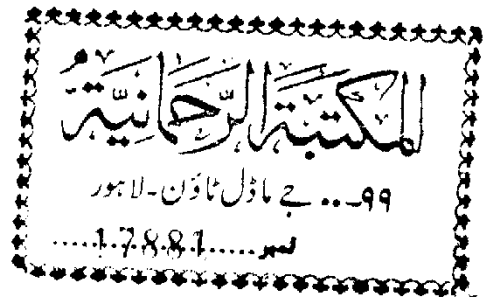 المکتبۃ الرّحمانیّۃ
۹۹-۰۰ جے ماڈل ٹاؤن - لاہور
نمبر.....17881.....